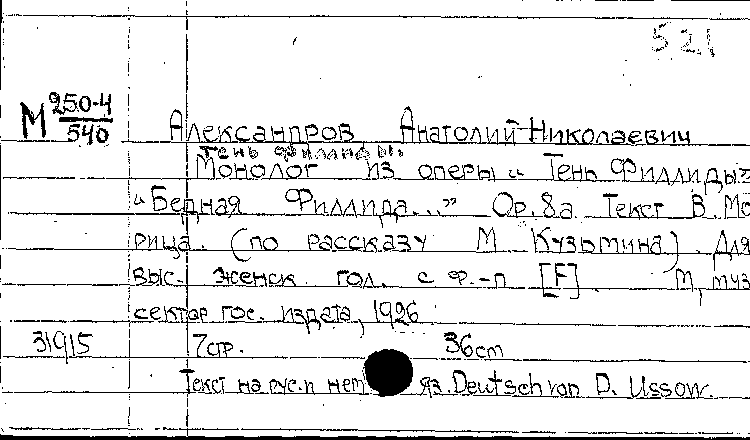 521
М 250-4/540
Александров Анатолий Николаевич
Тень Филлиды.
Монолог из оперы „Тень Филлиды"
„Бедная Филлида..." Op. 8a Текст В. Мо
рица. (по рассказу М Кузьмина). Для
выс. женск. гол. с ф.-п [F]. М, муз
сектор гос. издата, 1926
31915 7стр. 36cm
Текст на рус.и нем яз. Deutsch von D. Ussow.